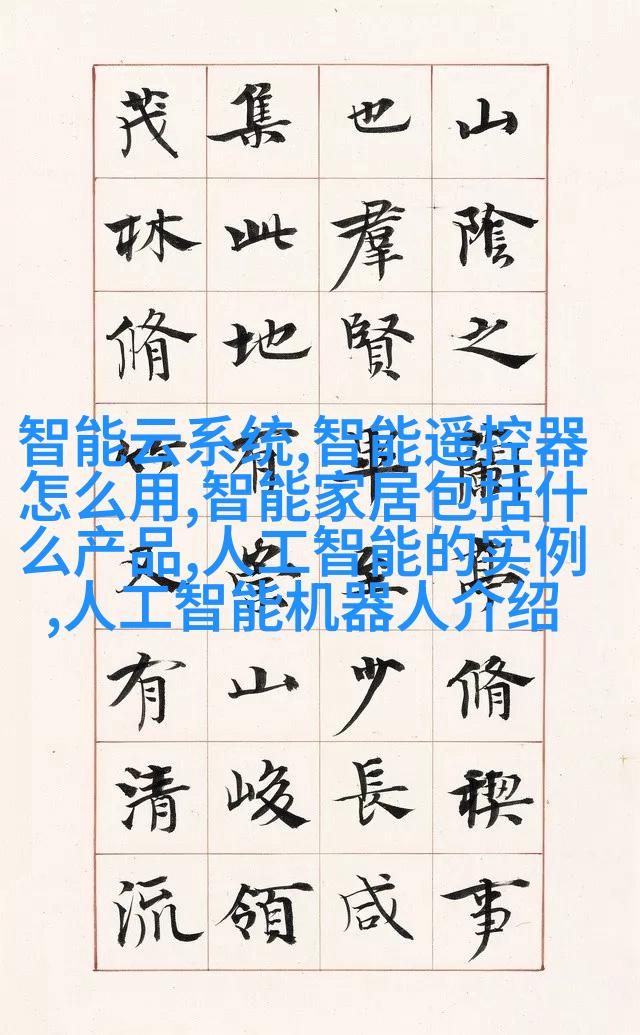 山陰之蘭脩稧事
也羣賢畢至少長咸
集此地有崇山峻領
茂林脩竹又有清流
智能云系统,智能遥控器
怎么用,智能家居包括什
么产品,人工智能的实例
,人工智能机器人介绍